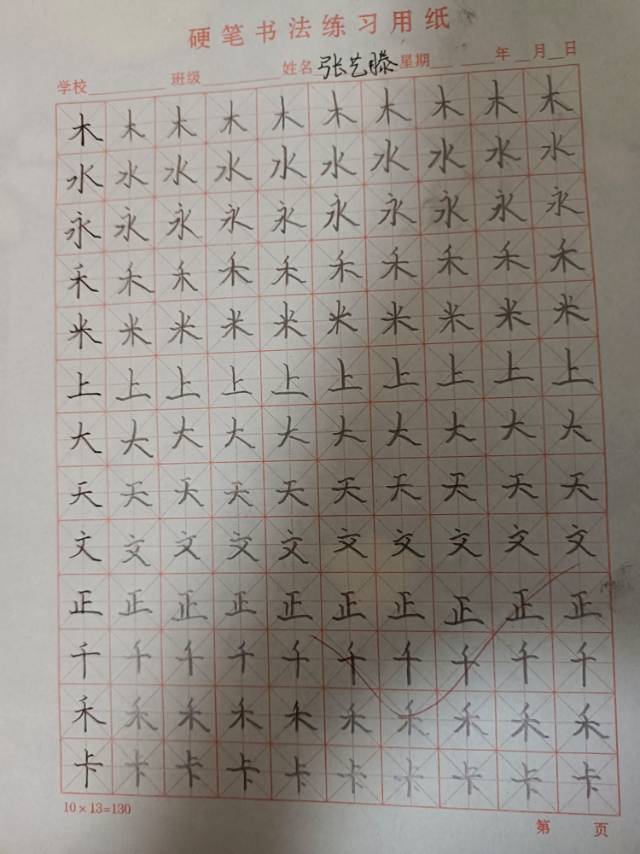 硬笔书法练习用纸
学校 班级 姓名 张艺滕 星期 年 月 日
木 木 木 木 木 木 木 木 木 木
水 水 水 水 水 水 水 水 水 水
永 永 永 永 永 永 永 永 永 永
禾 禾 禾 禾 禾 禾 禾 禾 禾 禾
米 米 米 米 米 米 米 米 米 米
上 上 上 上 上 上 上 上 上 上
大 大 大 大 大 大 大 大 大 大
天 天 天 天 天 天 天 天 天 天
文 文 文 文 文 文 文 文 文 文
正 正 正 正 正 正 正 正 正 正
千 千 千 千 千 千 千 千 千 千
禾 禾 禾 禾 禾 禾 禾 禾 禾 禾
卡 卡 卡 卡 卡 卡 卡 卡 卡 卡
10×13=130
第 页